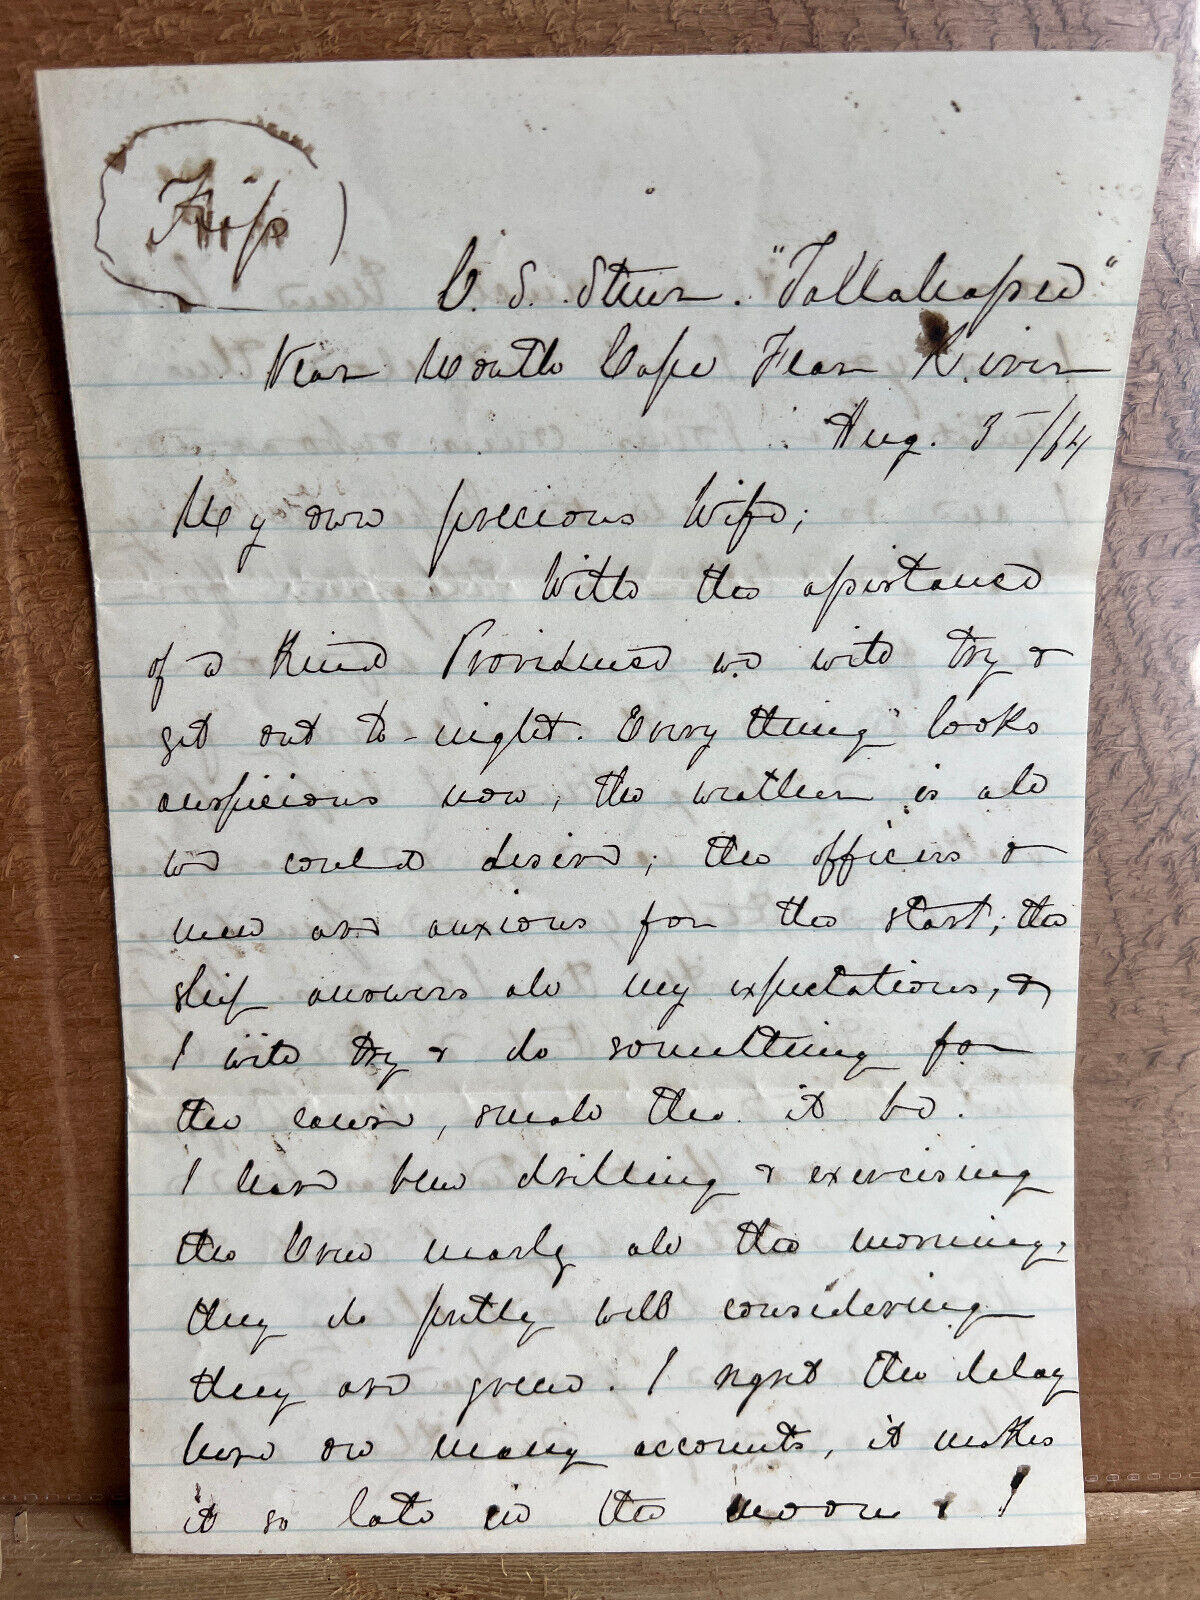 Kiss
C. S. Steamer. "Tallahassee"
Near Mouth Cape Fear River
Aug. 5 /64
My own precious Wife;
With the assistance
of a Kind Providence we will try &
get out to-night. Everything looks
auspicious now, the weather is all
we could desire; the officers &
men are anxious for the start; the
ship answers all my expectations, &
I will try & do something for
the cause, small tho. it be.
I have been drilling & exercising
the Crew nearly all the morning,
they do pretty well considering
they are green. I regret the delay
here on many accounts, it makes
it so late in the moon & I